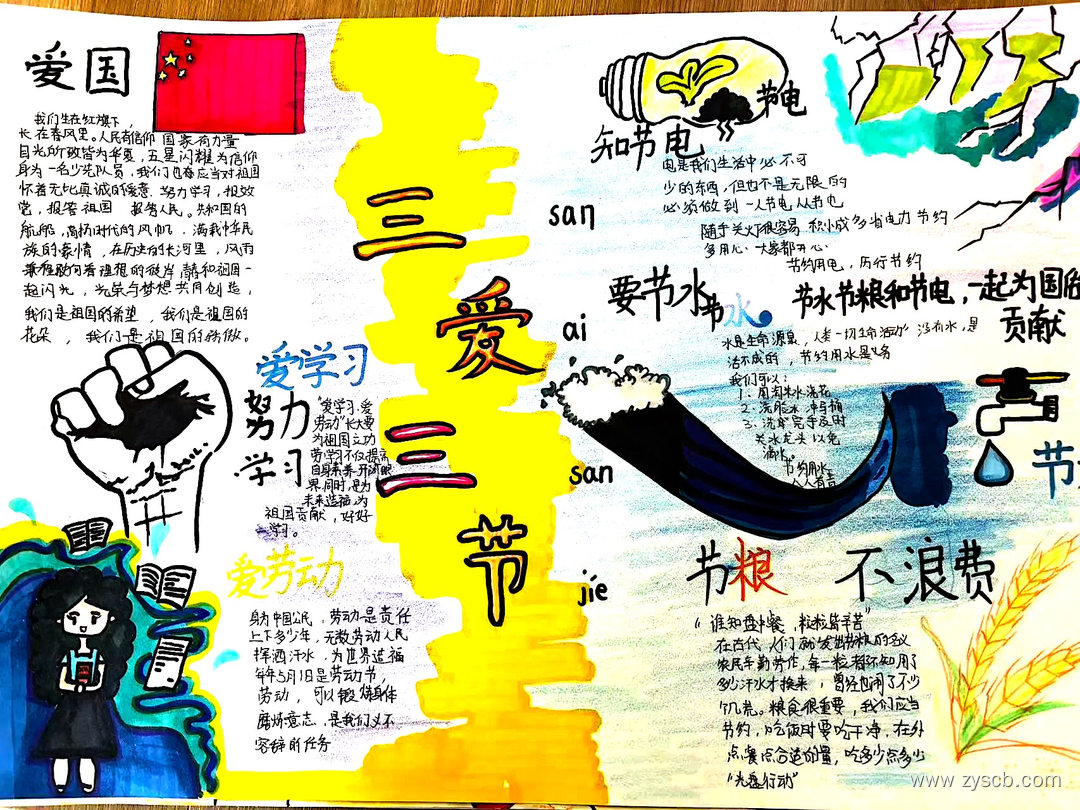 爱国
我们生在红旗下，
长在春风里。人民有信仰 国家有力量
目光所致皆为华夏，五星闪耀为信仰
身为一名少先队员，我们也应当对祖国
怀着无比真诚的爱意，努力学习，报效
党，报答祖国 报答人民。共和国的
航船，高扬时代的风帆，满我中华民
族的豪情，在历史的长河里，风雨
着理想的彼岸，和祖国一
起闪光，光荣与梦想共同创造，
我们是祖国的希望，我们是祖国的
花朵，我们是祖国的骄傲。
爱学习
努力
学习
"爱学习、爱
劳动"长大要
为祖国立功
劳，学习不仅提高
自身素养，开阔眼
界，同时，是为
未来造福，为
祖国贡献，好好
学习。
爱劳动
身为中国公民，劳动是责任
上下多少年，无数劳动人民
挥洒汗水，为世界造福
每年5月1日是劳动节，
劳动，可以锻炼身体
磨炼意志，是我们义不
容辞的任务
三
爱
三
节
san
ai
san
jie
节电
知节电
电是我们生活中必不可
少的东西，但也不是无限的
必须做到一人节电人人节电
随手关灯很容易，积小成多省电力 节约
多用心，大家都开心
节约用电，厉行节约
要节水
节水
节水节粮和节电，一起为国做
贡献
水是生命源泉，人类一切生命活动 没有水，是
活不成的，节约用水是
我们可以：
1. 用淘米水浇花
2. 洗脸水 冲马桶
3. 洗完手及时
关水龙头 以免
滴水。
节约用水
人人有责
节
节粮
不浪费
"谁知盘中餐，粒粒皆辛苦"
在古代，人们就发出节粮的名义
农民辛勤劳作，每一粒都不知用了
多少汗水才换来，曾经也闹了不少
饥荒。粮食很重要，我们应当
节约，吃饭时要吃干净，在外
点餐点合适的量，吃多少点多少
"光盘行动"
www.zyscb.com